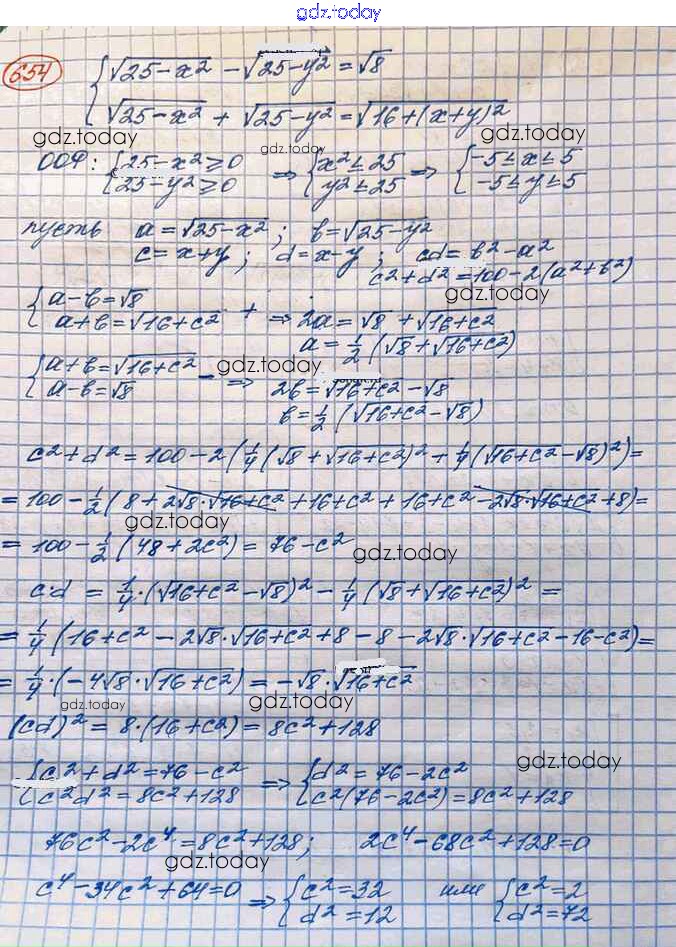 gdz.today
654
{√25-x² - √25-y² = √8
{√25-x² + √25-y² = √16+(x+y)²
gdz.today
gdz.today
gdz.today
ООФ: {25-x²≥0 ⇒ {x²≤25 ⇒ {-5≤x≤5
{25-y²≥0 {y²≤25 {-5≤y≤5
пусть a=√25-x²; b=√25-y²
c=x+y; d=x-y; cd=b²-a²
c²+d²=100-2(a²+b²)
gdz.today
{a-b=√8
{a+b=√16+c² + ⇒ 2a=√8+√16+c²
a=½(√8+√16+c²)
{a+b=√16+c²
gdz.today
{a-b=√8 - ⇒ 2b=√16+c²-√8
b=½(√16+c²-√8)
c²+d²=100-2(¼(√8+√16+c²)²+¼(√16+c²-√8)²)=
=100-½(8+2√8·√16+c²+16+c²+16+c²-2√8·√16+c²+8)=
gdz.today
=100-½(48+2c²)=76-c²
gdz.today
c·d=¼·(√16+c²-√8)²-¼(√8+√16+c²)²=
=¼(16+c²-2√8·√16+c²+8-8-2√8·√16+c²-16-c²)=
=¼·(-4√8·√16+c²)=-√8·√16+c²
gdz.today
gdz.today
(cd)²=8·(16+c²)=8c²+128
gdz.today
{c²+d²=76-c² ⇒ {d²=76-2c²
{c²d²=8c²+128 {c²(76-2c²)=8c²+128
76c²-2c⁴=8c²+128; 2c⁴-68c²+128=0
gdz.today
c⁴-34c²+64=0 ⇒ {c²=32 или {c²=2
{d²=12 {d²=72
gdz.today